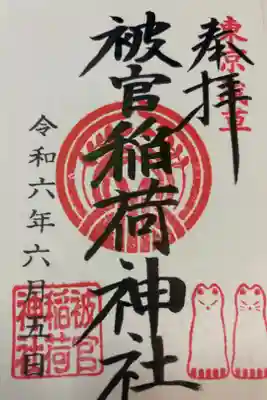 東京浅草
奉拝
被官稲荷神社
令和六年六月五日
被官稲荷神社